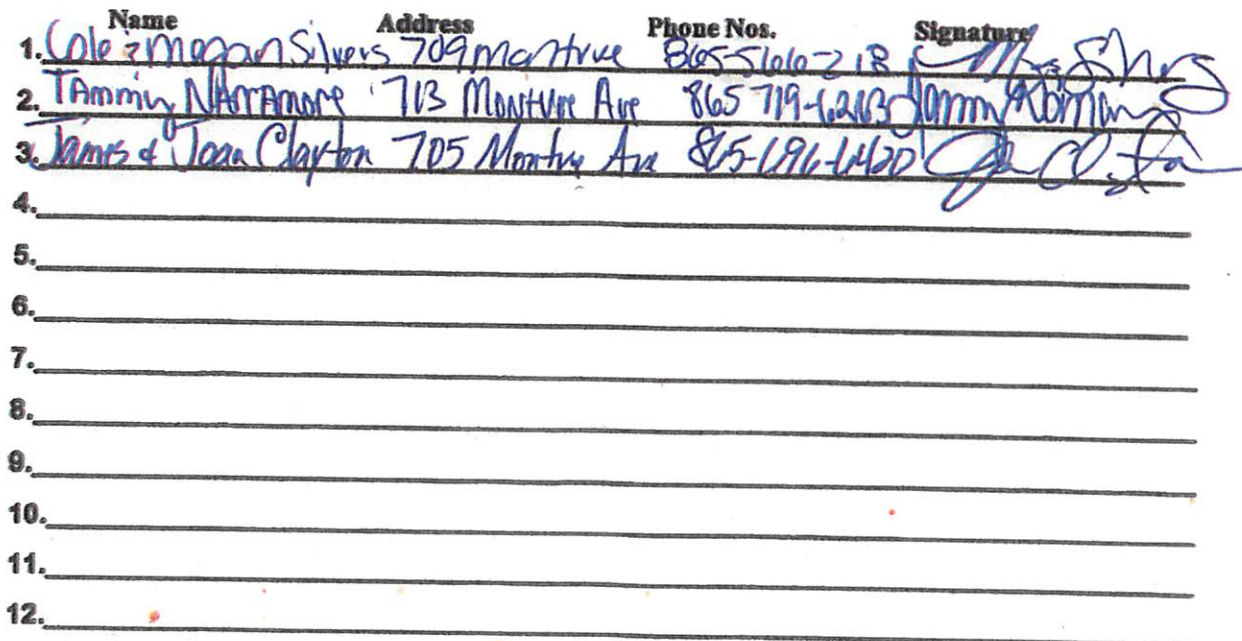 Name Address Phone Nos. Signature
1. Cole & Megan Silvers 709 Montvue
2. TAmmy NArrAmore 713 Montvue Ave 865 719-6263
3. James & Joan Clayton 705 Montvue Ave 865-696-6420
4.
5.
6.
7.
8.
9.
10.
11.
12.